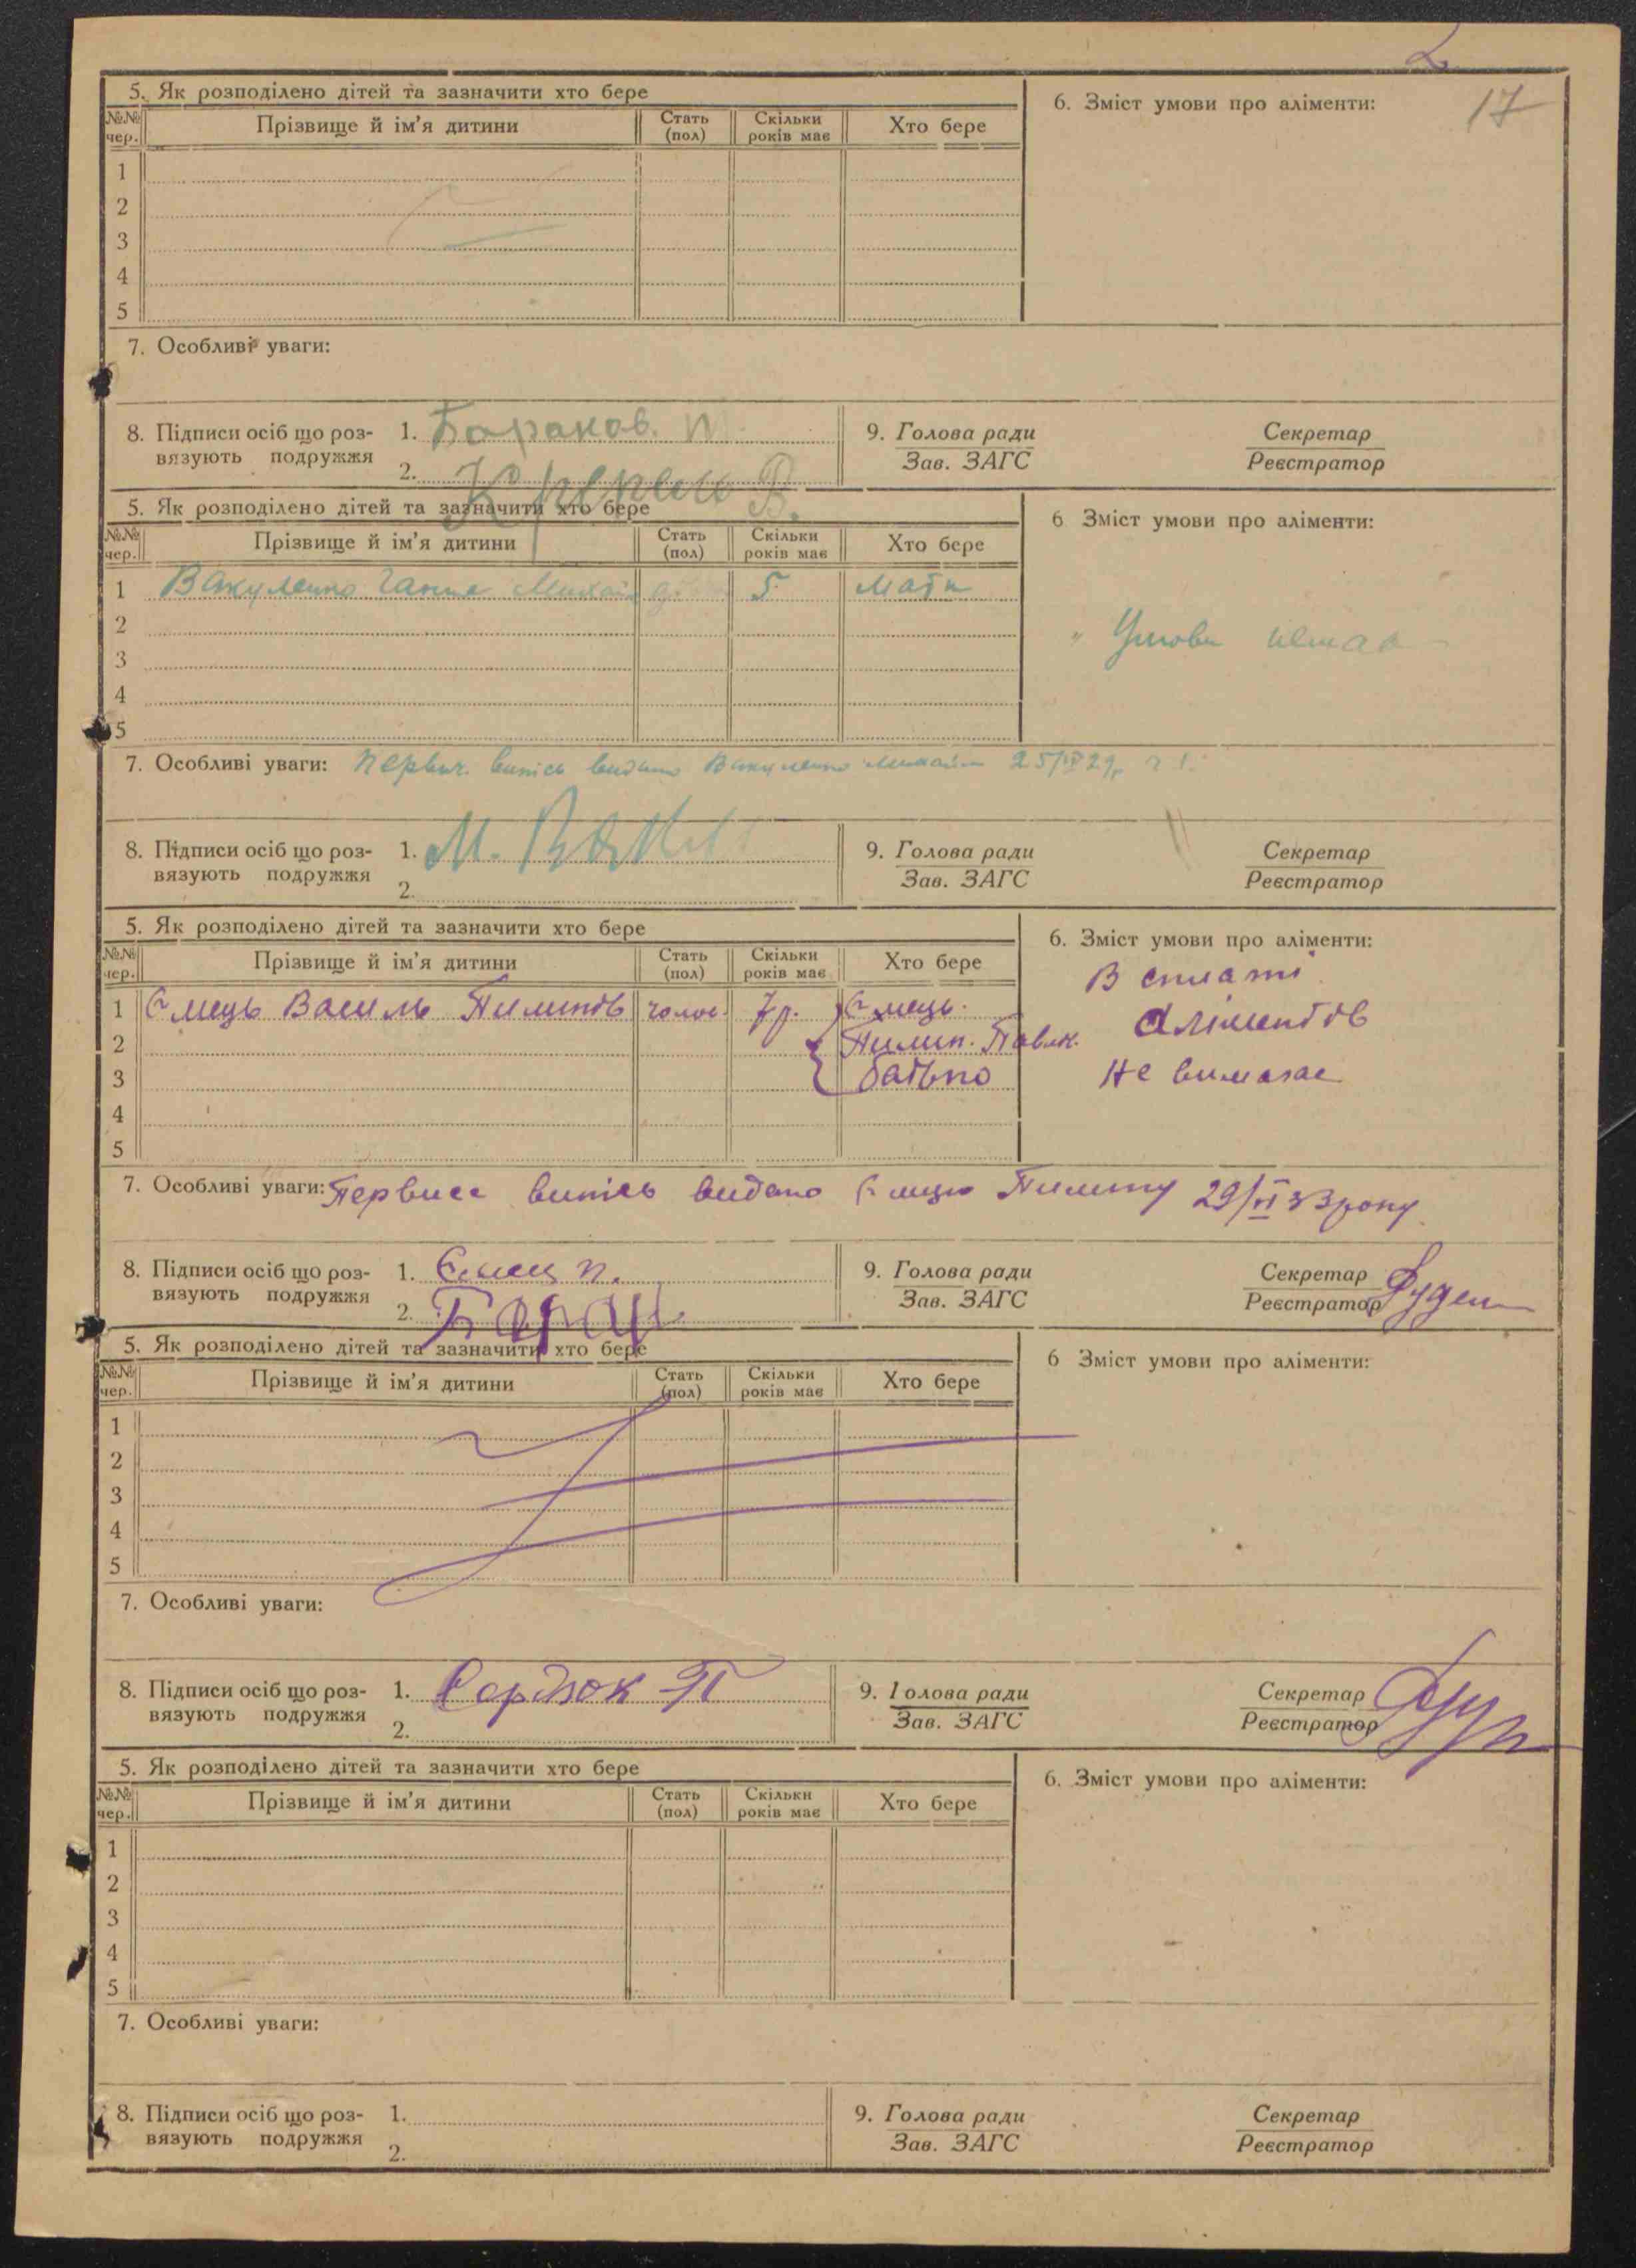 2
17
5. Як розподілено дітей та зазначити хто бере
6. Зміст умови про аліменти:
№№ чер. Прізвище й ім'я дитини Стать (пол) Скільки років має Хто бере
1
2
3
4
5
7. Особливі уваги:
8. Підписи осіб що роз-
вязують подружжя
1.
2.
9. Голова ради
Зав. ЗАГС
Секретар
Реєстратор
5. Як розподілено дітей та зазначити хто бере
6 Зміст умови про аліменти:
№№ чер. Прізвище й ім'я дитини Стать (пол) Скільки років має Хто бере
1 Вакуленко Ганна 5 Мати
2
3
4
5
Умови немає
7. Особливі уваги: Первич. випісь видано Вакуленко
8. Підписи осіб що роз-
вязують подружжя
1. М.
2.
9. Голова ради
Зав. ЗАГС
Секретар
Реєстратор
5. Як розподілено дітей та зазначити хто бере
6. Зміст умови про аліменти:
№№ чер. Прізвище й ім'я дитини Стать (пол) Скільки років має Хто бере
1 Ємець Василь Пилипів чолов. 7 р. Ємець.
2 Пилип. Павлов.
3 батько
4
5
В сплаті
Аліментів
Не вимагає
7. Особливі уваги: випісь видано Ємцю Пилипу 29/VI 33 року
8. Підписи осіб що роз-
вязують подружжя
1. Ємец П.
2.
9. Голова ради
Зав. ЗАГС
Секретар
Реєстратор
5. Як розподілено дітей та зазначити хто бере
6 Зміст умови про аліменти:
№№ чер. Прізвище й ім'я дитини Стать (пол) Скільки років має Хто бере
1
2
3
4
5
7. Особливі уваги:
8. Підписи осіб що роз-
вязують подружжя
1. Сердюк П
2.
9. Голова ради
Зав. ЗАГС
Секретар
Реєстратор
5. Як розподілено дітей та зазначити хто бере
6. Зміст умови про аліменти:
№№ чер. Прізвище й ім'я дитини Стать (пол) Скільки років має Хто бере
1
2
3
4
5
7. Особливі уваги:
8. Підписи осіб що роз-
вязують подружжя
1.
2.
9. Голова ради
Зав. ЗАГС
Секретар
Реєстратор